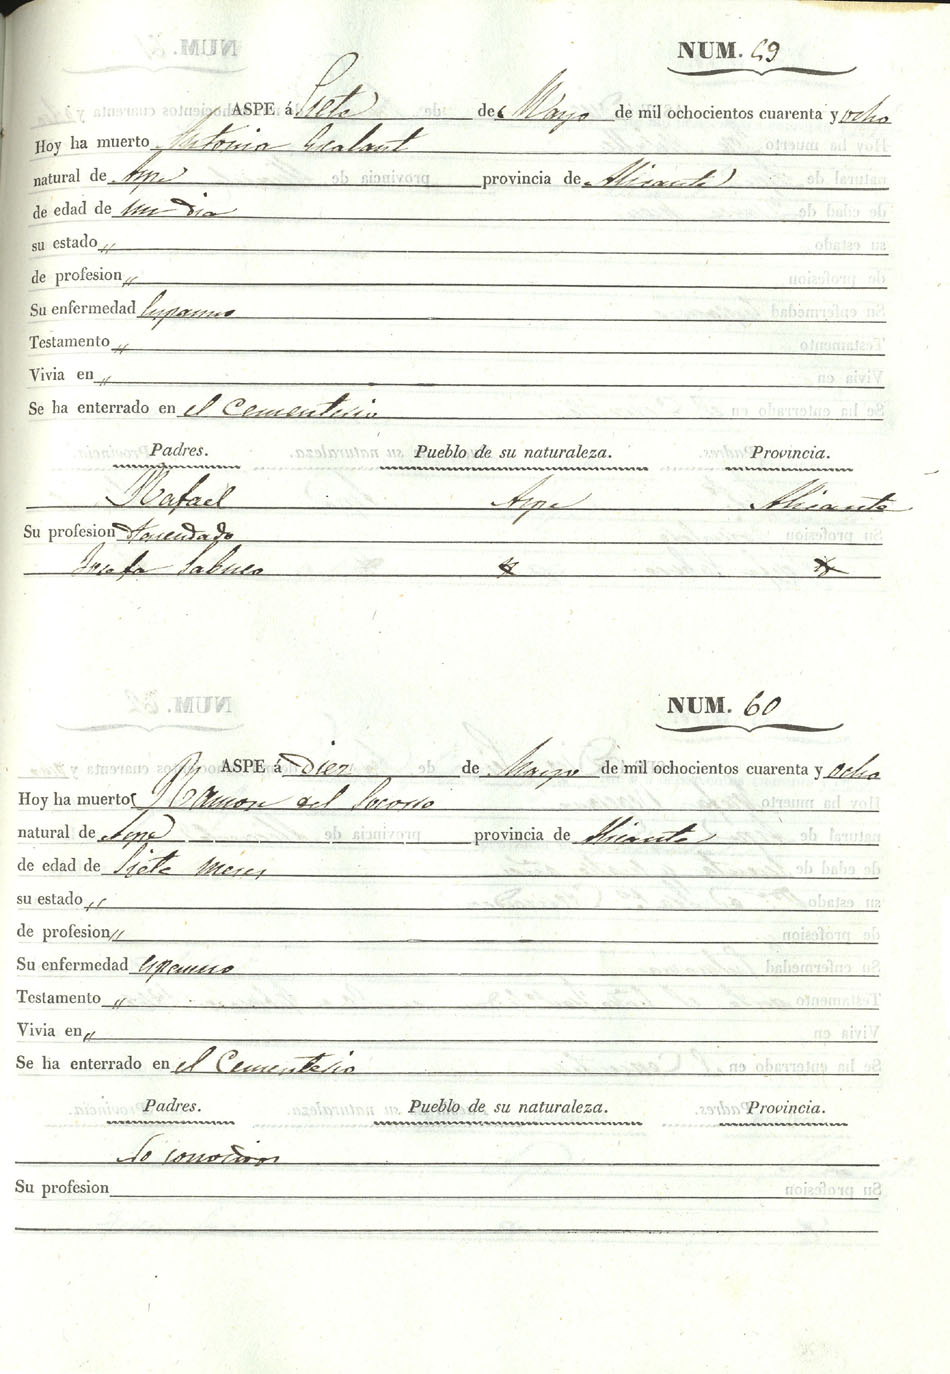 NUM. 59
ASPE á Siete de Mayo de mil ochocientos cuarenta y ocho
Hoy ha muerto Antonia Galant
natural de Aspe provincia de Alicante
de edad de un dia
su estado „
de profesion „
Su enfermedad Espasmo
Testamento „
Vivia en „
Se ha enterrado en el Cementerio
Padres. Pueblo de su naturaleza. Provincia.
Rafael Aspe Alicante
Su profesion Hacendado
Josefa Sabuco
NUM. 60
ASPE á Diez de Mayo de mil ochocientos cuarenta y ocho
Hoy ha muerto Ramon del Socorro
natural de Aspe provincia de Alicante
de edad de Siete meses
su estado „
de profesion „
Su enfermedad espasmo
Testamento „
Vivia en „
Se ha enterrado en el Cementerio
Padres. Pueblo de su naturaleza. Provincia.
No conocidos
Su profesion